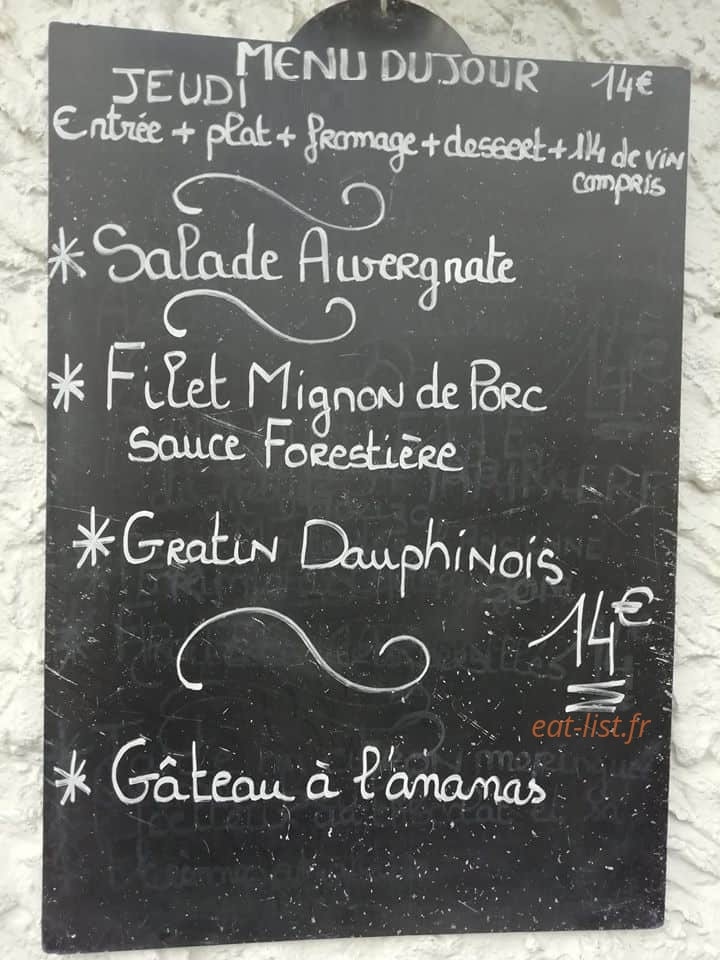 MENU DU JOUR 14€
JEUDI
Entrée + plat + fromage + dessert + 1/4 de vin
compris
* Salade Auvergnate
* Filet Mignon de Porc
sauce Forestière
* Gratin Dauphinois
14€
eat-list.fr
* Gâteau à l'ananas